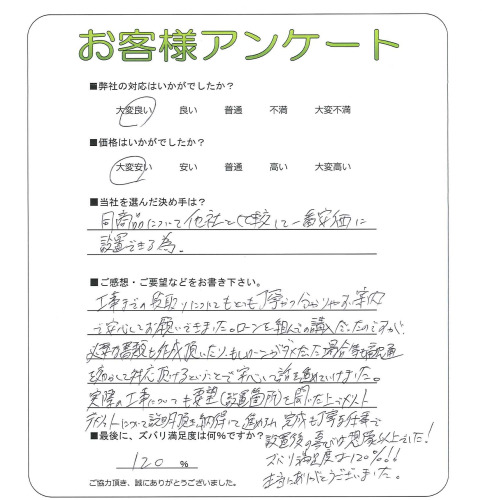 お客様アンケート
■弊社の対応はいかがでしたか？
大変良い 良い 普通 不満 大変不満
■価格はいかがでしたか？
大変安い 安い 普通 高い 大変高い
■当社を選んだ決め手は？
同商品について他社と比較して一番安価に
設置できる為。
■ご感想・ご要望などをお書き下さい。
工事までの段取りについてもとても丁寧かつ分かりやすい案内
で安心してお願いできました。ローンを組んでの購入だったのですが、
必要書類も作成頂いたり、もしローンがダメだった場合等も
を 対応頂けるということで安心して話を進めていけました。
実際の工事についても要望(設置箇所)を聞いた上でメリット
デメリットについて説明頂き納得して進められ 完成も丁寧な仕事で
設置後の喜びは想像以上でした！
■最後に、ズバリ満足度は何％ですか？
ズバリ満足度は120％!!
120 %
本当にありがとうございました。
ご協力頂き、誠にありがとうございました。